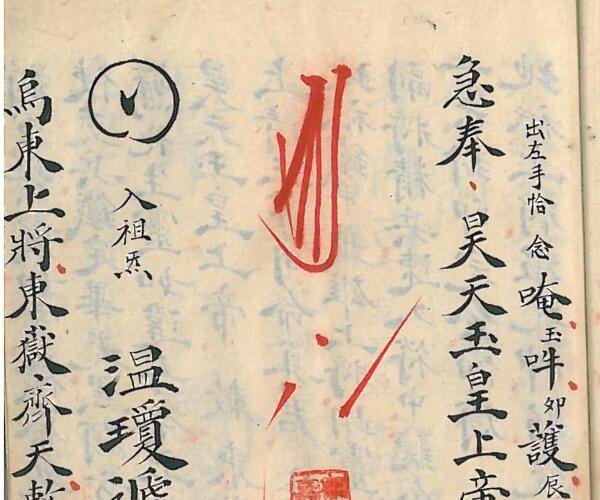 出左手恰 念 唵玉吽卯護辰
急奉昊天玉皇上帝
入祖炁
温瓊
烏東上將東嶽齊天